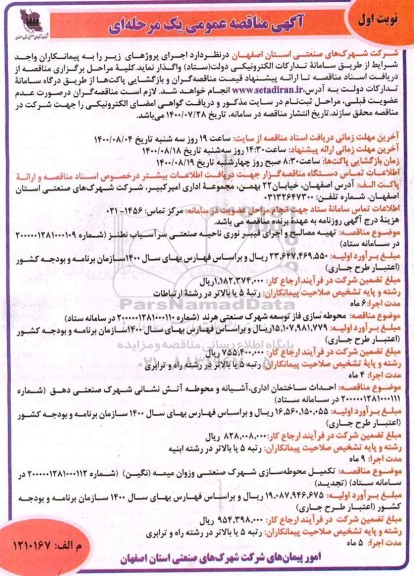 نوبت اول
آگهی مناقصه عمومی یک مرحله‌ای
شرکت شهرک‌های صنعتی استان اصفهان درنظردارد اجرای پروژهای زیر را به پیمانکاران واجد
شرایط از طریق سامانهٔ تدارکات الکترونیکی دولت(ستاد) واگذار نماید.کلیهٔ مراحل برگزاری مناقصه از
دریافت اسناد مناقصه تا ارائه پیشنهاد قیمت مناقصه‌گران و بازگشایی پاکت‌ها از طریق درگاه سامانهٔ
تدارکات دولت به آدرس www.setadiran.ir انجام خواهد شد. لازم است مناقصه‌گران درصورت عدم
عضویت قبلی، مراحل ثبت‌نام در سایت مذکور و دریافت گواهی امضای الکترونیکی را جهت شرکت در
مناقصه محقق سازند.تاریخ انتشار مناقصه در سامانه، تاریخ ۱۴۰۰/۰۷/۲۸ می‌باشد.
آخرین مهلت زمانی دریافت اسناد مناقصه از سایت: ساعت ۱۹ روز سه شنبه تاریخ ۱۴۰۰/۰۸/۰۴
آخرین مهلت زمانی ارائه پیشنهاد: ساعت۱۴:۳۰ روز سه‌شنبه تاریخ ۱۴۰۰/۰۸/۱۸
زمان بازگشایی پاکت‌ها: ساعت۸:۳۰ صبح روز چهارشنبه تاریخ ۱۴۰۰/۰۸/۱۹
اطلاعات تماس دستگاه مناقصه‌گزار جهت دریافت اطلاعات بیشتر درخصوص اسناد مناقصه و ارائهٔ
پاکت الـف: آدرس اصفهان، خیابان۲۲ بهمن، مجموعهٔ اداری امیرکبیر، شرکت شهرک‌های صنعتی استان
اصفهان. شماره تلفن: ۰۳۱۳۲۶۴۷۳۰۰
اطلاعات تماس سامانهٔ ستاد جهت انجام مراحل عضویت در سامانه: مرکز تماس: ۱۴۵۶-۰۲۱
هزینهٔ درج آگهی روزنامه به عهدهٔ برنده مناقصه می باشد.
موضوع مناقصه: تهیه مصالح و اجرای فیبر نوری ناحیه صنعتی سرآسیاب نطنز (شماره ۲۰۰۰۰۰۱۲۸۱۰۰۰۱۰۹
در سامانه ستاد)
مبلغ بـرآورد اولیـه: ۲۳،۶۴۷،۴۶۹،۵۵۰ ریـال و براساس فهارس بهـای سـال ۱۴۰۰ سـازمان برنامـه و بودجـه کشـور
(اعتبـار طرح جـاری)
مبلغ تضمین شرکت در فرآیند ارجاع کار: ۱،۱۸۲،۳۷۴،۰۰۰ ریـال
رشته و پایه تشخیص صلاحیت پیمانکاران: رتبهٔ ۵ یا بالاتر در رشتهٔ ارتباطات
مدت اجرا: ۶ ماه
موضوع مناقصه: محوطه سازی فاز توسعه شهرک صنعتی هرند (شماره ۲۰۰۰۰۰۱۲۸۱۰۰۰۱۱۰ در سامانه ستاد)
مبلغ بـرآورد اولیـه: ۱۵،۱۰۷،۹۸۱،۷۷۹ریـال و براسـاس فهـارس بهـای سـال ۱۴۰۰سازمان برنامه و بودجه کشور
(اعتبار طرح جاری)
مبلغ تضمین شرکت در فرآیند ارجاع کار: ۷۵۵،۴۰۰،۰۰۰ ریال
رشته و پایهٔ تشخیص صلاحیت پیمانکاران: رتبه ۵ یا بالاتر در رشته راه و ترابری
مدت اجرا: ۴ ماه
موضوع مناقصه: احداث ساختمان اداری،آشیانه و محوطه آتش نشانی شهرک صنعتی دهق (شماره
۲۰۰۰۰۰۱۲۸۱۰۰۰۱۱۱ در سامانه ستاد)
مبلغ بـرآورد اولیـه: ۱۶،۵۶۰،۱۵۰،۰۵۵ ریـال و براسـاس فهـارس بهـای سـال ۱۴۰۰ سازمان برنامه و بودجه کشور
(اعتبار طرح جاری)
مبلغ تضمین شرکت در فرآیند ارجاع کار: ۸۲۸،۰۰۸،۰۰۰ ریال
رشته و پایهٔ تشخیص صلاحیت پیمانکاران: رتبه ۵ یا بالاتر در رشته ابنیه
مدت اجرا: ۹ ماه
موضوع مناقصه: تکمیـل محوطه‌سازی شهرک صنعتی وزوان میمه (نگین) (شماره ۲۰۰۰۰۰۱۲۸۱۰۰۰۱۱۲ در
سامانه ستاد) (تجدید)
مبلغ بـرآورد اولیـه: ۱۹،۰۸۷،۹۴۶،۶۷۵ ریـال و براسـاس فهـارس بهـای سـال ۱۴۰۰ سازمان برنامه و بودجه
کشور (اعتبار طرح جاری)
مبلغ تضمین شرکت در فرآیند ارجاع کار: ۹۵۴،۳۹۸،۰۰۰ ریال
رشته و پایهٔ تشخیص صلاحیت پیمانکاران: رتبه ۵ یا بالاتر در رشته راه و ترابری
مدت اجرا: ۵ ماه
امور پیمان‌های شرکت شهرک‌های صنعتی استان اصفهان
م الف: ۱۲۱۰۱۶۷